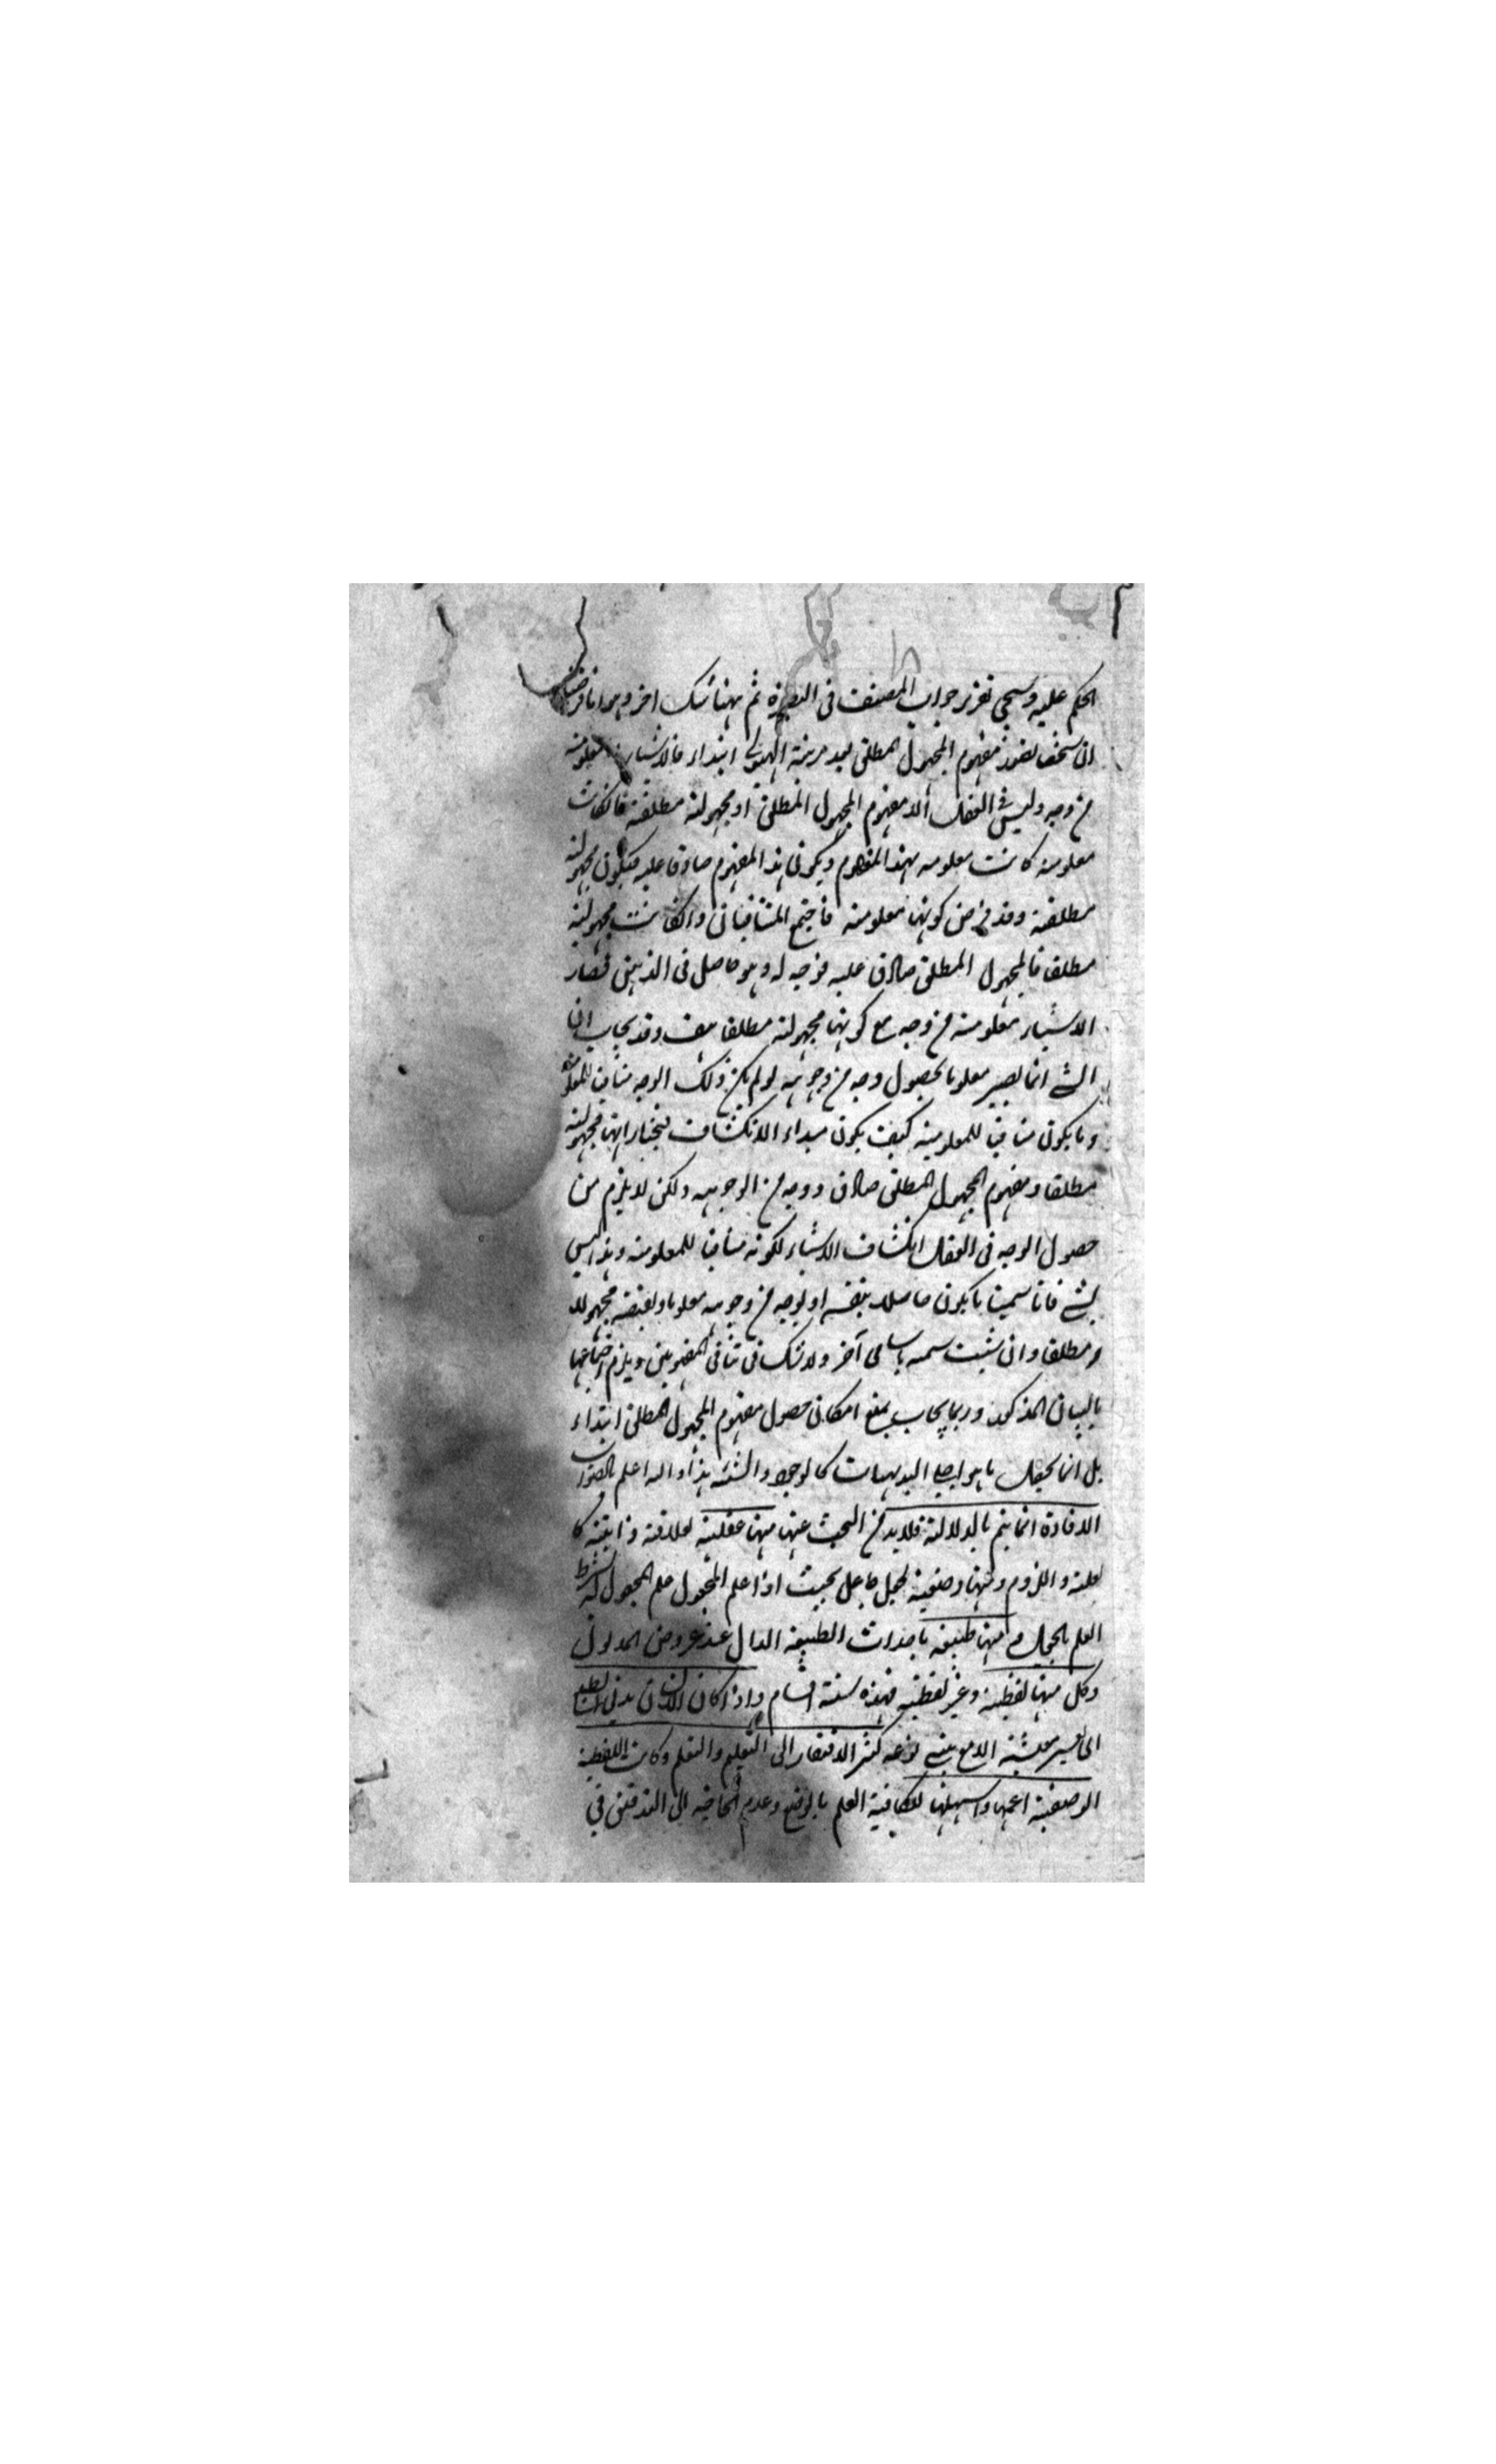 الحكم عليه وسيجي تقرير جواب المصنف فى ثم ههنا شك اخر وهو انا فرضنا
ان شخصا تصور مفهوم المجهول المطلق بعد مرتبة الهيولى ابتداء فالاشياء معلومة
من وجه وليس فى العقل الا مفهوم المجهول المطلق او مجهولة مطلقة فانكانت
معلومة كانت معلومة بهذا المفهوم ويكون هذا المفهوم صادقا عليه فيكون مجهولة
مطلقة وقد فرض كونها معلومة فاجتمع المتنافيان وانكانت مجهولة
مطلقا فالمجهول المطلق صادق عليه فوجه له وهو حاصل فى الذهن فصار
الاشياء معلومة من وجه مع كونها مجهولة مطلقا هف وقد يجاب ان
الشئ انما يصير معلوما بحصول وجه من وجوهه لو لم يكن ذلك الوجه منافيا للمعلومية
وما يكون منافيا للمعلومية كيف يكون مبداء الانكشاف فيختار انها مجهولة
مطلقا ومفهوم المجهول المطلق صادق ووجه من الوجوه ولكن لا يلزم من
حصول الوجه فى العقل انكشاف الاشياء لكونه منافيا للمعلومية وهذا ليس
بشئ فانا سمينا ما يكون حاصلا بنفسه او بوجه من وجوهه معلوما ونقيضه مجهولا
مطلقا وان شئت سمه باسامى آخر ولا شك فى تنافى المفهومين ويلزم اجتماعهما
بالبيان المذكور وربما يجاب بمنع امكان حصول مفهوم المجهول المطلق ابتداء
بل انما يحصل ما هو اجلى البديهيات كالوجود والشئية هذا والله اعلم بالصواب
الافادة انما يتم بالدلالة فلا بد من البحث عنها منها عقلية لعلاقة ذاتية كا
لعلية واللزوم ومنها وضعية لجعل جاعل بحيث اذا علم المجعول علم المجعول له بشرط
العلم بالجعل ومنها طبيعية باحداث الطبيعة الدال عند عروض المدلول
وكل منها لفظية وغير لفظية فهذه ستة اقسام واذا كان الانسان مدنى الطبع
اى معيشته الا مع بنى نوعه كثير الافتقار الى التعليم والتعلم وكانت اللفظية
الوضعية اعمها واسهلها لكفاية العلم بالوضع وعدم الحاجة الى التدقيق فى